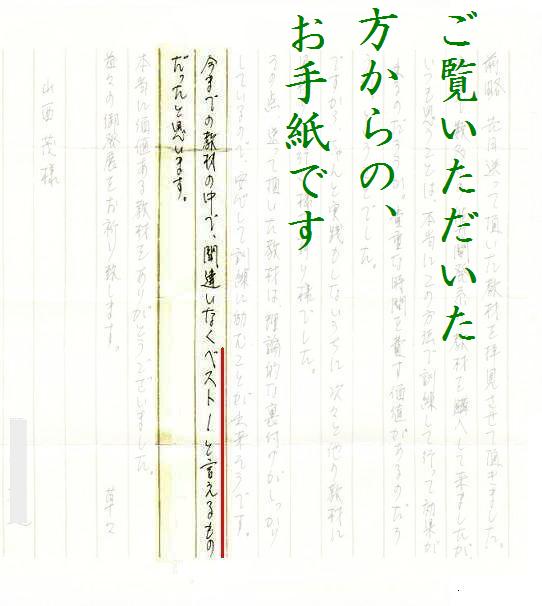 ご覧いただいた
方からの、
お手紙です
前略 先日送って頂いた教材を拝見させて頂きました。
教材を購入して来ましたが、
いつも思うことは本当にこの方法で訓練して行って効果が
貴重な時間を費す価値があるのだろう
でした。
実践もしないうちに次々と他の教材に
り様でした。
その点、送って頂いた教材は理論的な裏付けがしっかり
しているので、安心して訓練に励むことが出来そうです。
今までの教材の中で、間違いなくベスト1と言えるもの
だったと思います。
本当に価値ある教材をありがとうございました。
益々御発展をお祈り致します。
草々
山西茂様